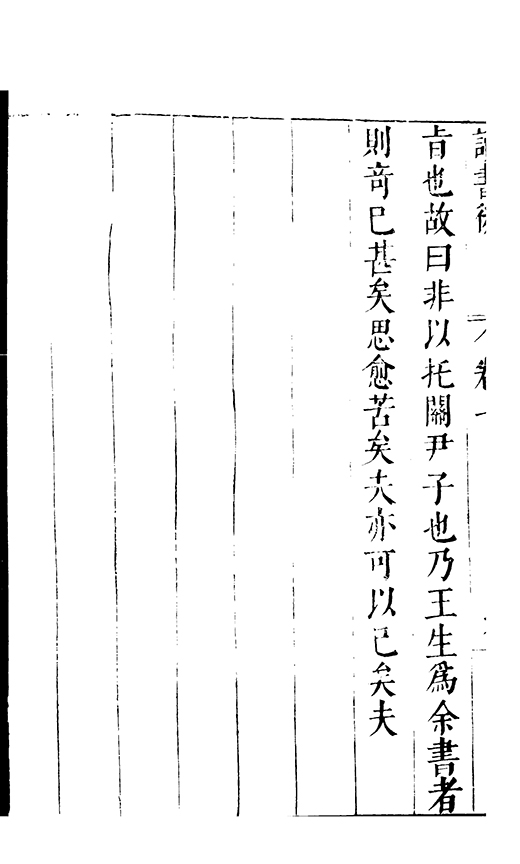 讀書後 卷七
旨也故曰非以托關尹子也乃王生爲余書者
則奇巳甚矣思愈苦矣夫亦可以已矣夫